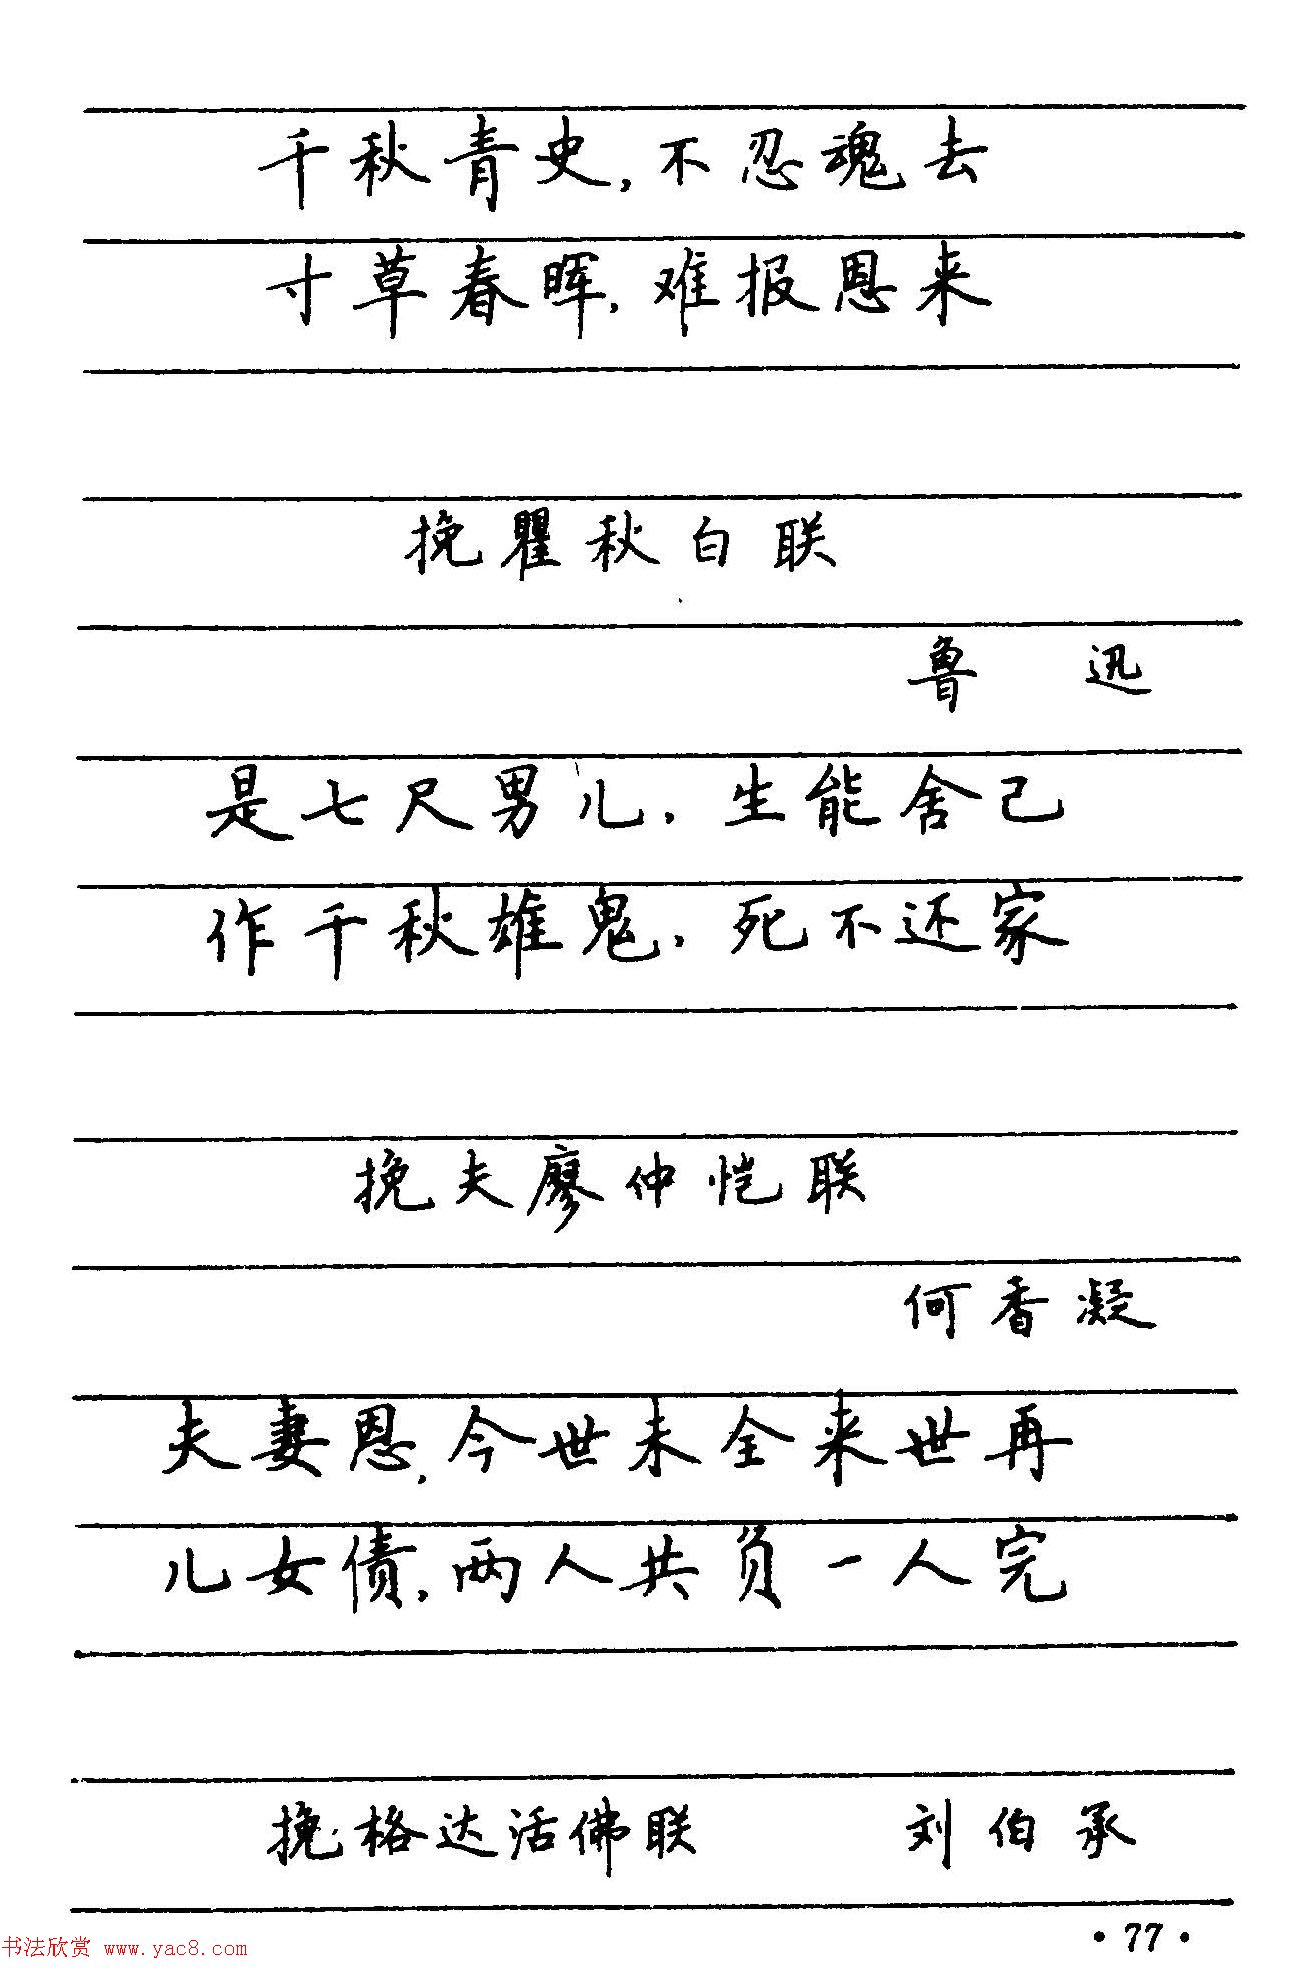 千秋青史,不忍魂去
寸草春晖,难报恩来
挽瞿秋白联
鲁 迅
是七尺男儿,生能舍己
作千秋雄鬼,死不还家
挽夫廖仲恺联
何香凝
夫妻恩,今世未全来世再
儿女债,两人共负一人完
挽格达活佛联 刘伯承
·77·
书法欣赏 www.yac8.com